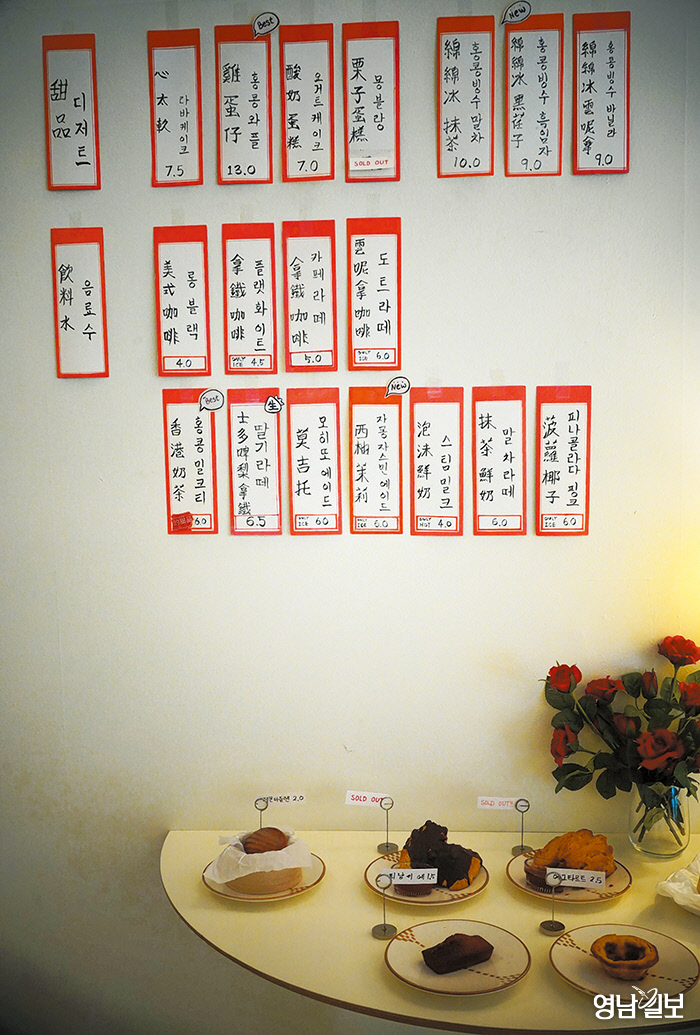 甜品
디저트
心太軟
라바케이크
7.5
Best
雞蛋仔
홍콩와플
13.0
酸奶蛋糕
요거트케이크
7.0
栗子蛋糕
몽블랑
SOLD OUT
綿綿冰 抹茶
홍콩빙수 말차
10.0
New
綿綿冰 黑荏子
홍콩빙수 흑임자
9.0
綿綿冰 雲呢拿
홍콩빙수 바닐라
9.0
飮料水
음료수
美式咖啡
롱블랙
4.0
拿鐵咖啡
플랫화이트
ONLY ICE 4.5
拿鐵咖啡
카페라떼
5.0
雲呢拿咖啡
도트라떼
ONLY ICE 6.0
Best
香港奶茶
홍콩밀크티
6.0
生
士多啤梨拿鐵
딸기라떼
6.5
莫吉托
모히또에이드
ONLY ICE 6.0
New
西柚茉莉
자몽자스민에이드
ONLY ICE 6.0
泡沫鮮奶
스팀밀크
ONLY HOT 4.0
抹茶鮮奶
말차라떼
6.0
菠蘿椰子
피나콜라다 핑크
ONLY ICE 6.0
2.0
SOLD OUT
SOLD OUT
에그타르트 2.5
영남일보